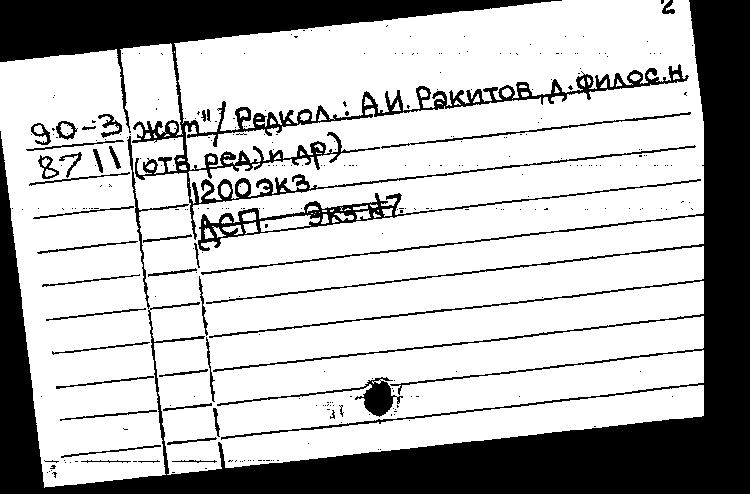 2
90-3 жот"/ Редкол.: А.И. Ракитов, д.филос.н.
8711 (отв. ред.) и др.)
1200 экз.
ДСП. Экз.№7.